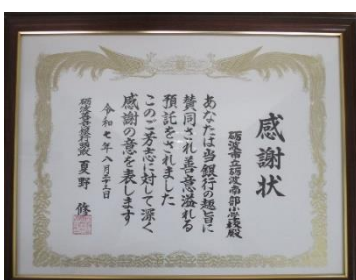 感謝状
砺波市立砺波南部小学校殿
あなたは当銀行の趣旨に
賛同され善意溢れる
預託をされました
このご芳志に対して深く
感謝の意を表します
令和七年八月二十三日
砺波善意銀行頭取 夏野 修